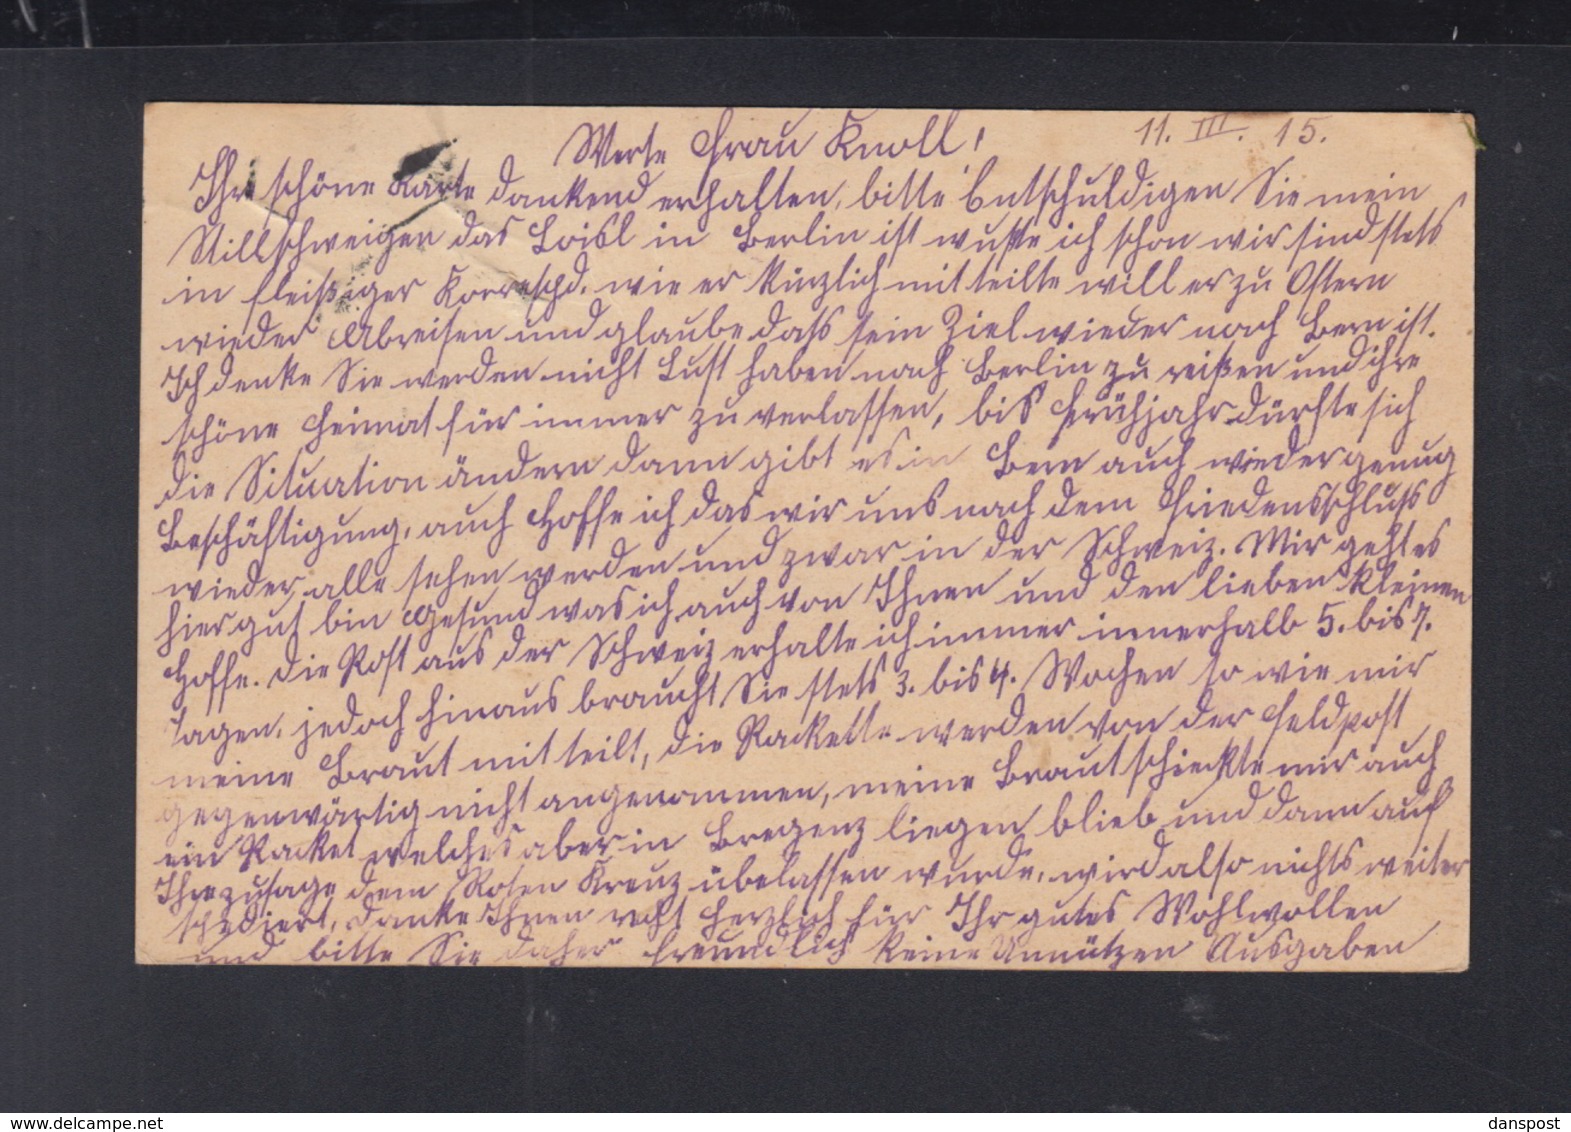 11. III. 15.
Werte Frau Knoll!
Ihre schöne Karte dankend erhalten, bitte Entschuldigen Sie mein
Stillschweigen das Loisl in Berlin ist wußte ich schon wir sind stets
in fleißiger Korreschd. wie er kürzlich mitteilte will er zu Ostern
wieder Abreisen und glaube dass sein Ziel wieder nach Bern ist.
Ich denke Sie werden nicht Lust haben nach Berlin zu reißen und ihre
schöne Heimat für immer zu verlassen, bis Frühjahr dürfte sich
die Situation ändern dann gibt es in Bern auch wieder genug
Beschäftigung, auch Hoffe ich das wir uns nach dem Friedensschluss
wieder alle sehen werden und zwar in der Schweiz. Mir geht es
hier gut bin Gesund was ich auch von Ihnen und den lieben Kleinen
Hoffe. Die Post aus der Schweiz erhalte ich immer innerhalb 5. bis 7.
Tagen, jedoch hinaus braucht Sie stets 3. bis 4. Wochen so wie mir
meine Braut mitteilt, die Packette werden von der Feldpost
gegenwärtig nicht angenommen, meine Braut schickte mir auch
ein Packet welches aber in Bregenz liegen blieb und dann auf
Ihre zusage dem Roten Kreuz übelassen wurde, wird also nichts weiter
spediert, danke Ihnen recht herzlich für Ihr gutes Wohlwollen
und bitte Sie daher freundlich keine Unnützen Ausgaben
www.delcampe.net
danspost